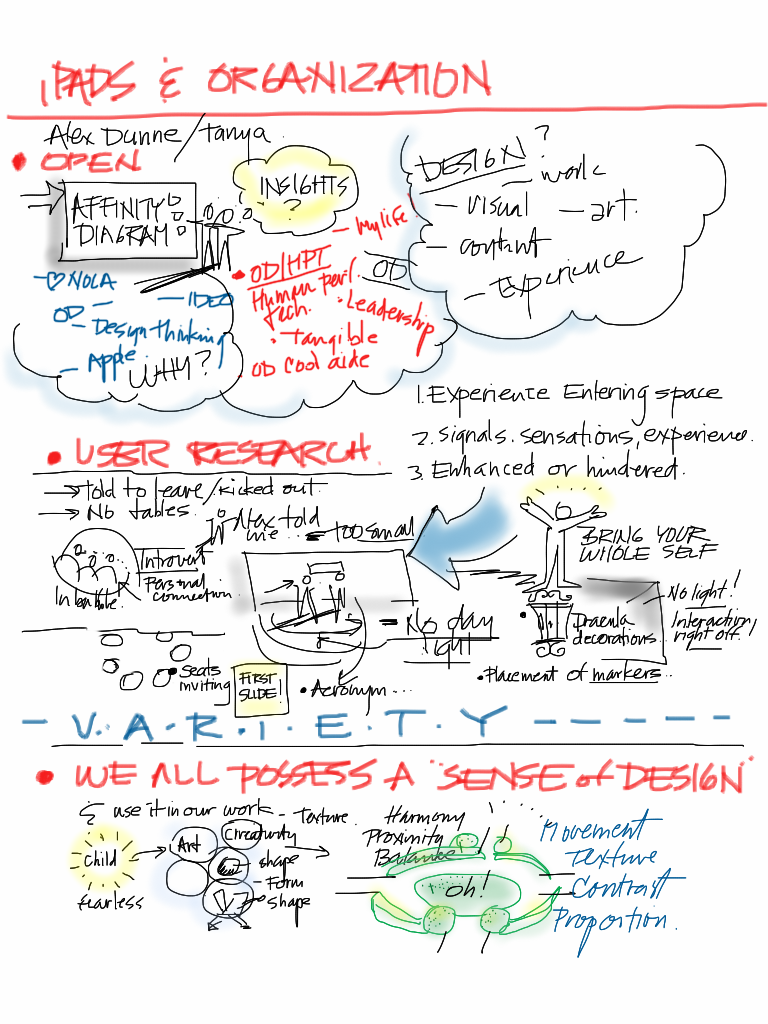 iPADS & ORGANIZATION
Alex Dunne/Tanya
• OPEN
AFFINITY
DIAGRAM
INSIGHTS
?
DESIGN?
– work
– visual
– art.
– content
– Experience
– my life
OD
• OD/HPT
Human perf.
Tech.
• Leadership
• Tangible
OD Cool aide
– ♡ NOLA
OD –
– IDEO
– Design thinking
– Apple
WHY?
1. Experience Entering space
2. Signals. sensations, experience.
3. Enhanced or hindered.
• USER RESEARCH
→ Told to leave/kicked out
→ No tables.
Alex told
me
= too small
Introvert
Personal
connection
BRING YOUR
WHOLE SELF
= No day
light
• Dracula
decorations...
– No light!
Interaction,
right off.
• Placement of markers...
• Seats
inviting
FIRST
SLIDE!
• Acronym ...
– V. A. R. I. E. T. Y – – – – – –
• WE ALL POSSESS A "SENSE of DESIGN"
& use it in our work
child
fearless
Art
– Texture
– shape
– Form
shape
Harmony
Proximity
Balance
oh!
Movement
Texture
Contrast
Proportion.